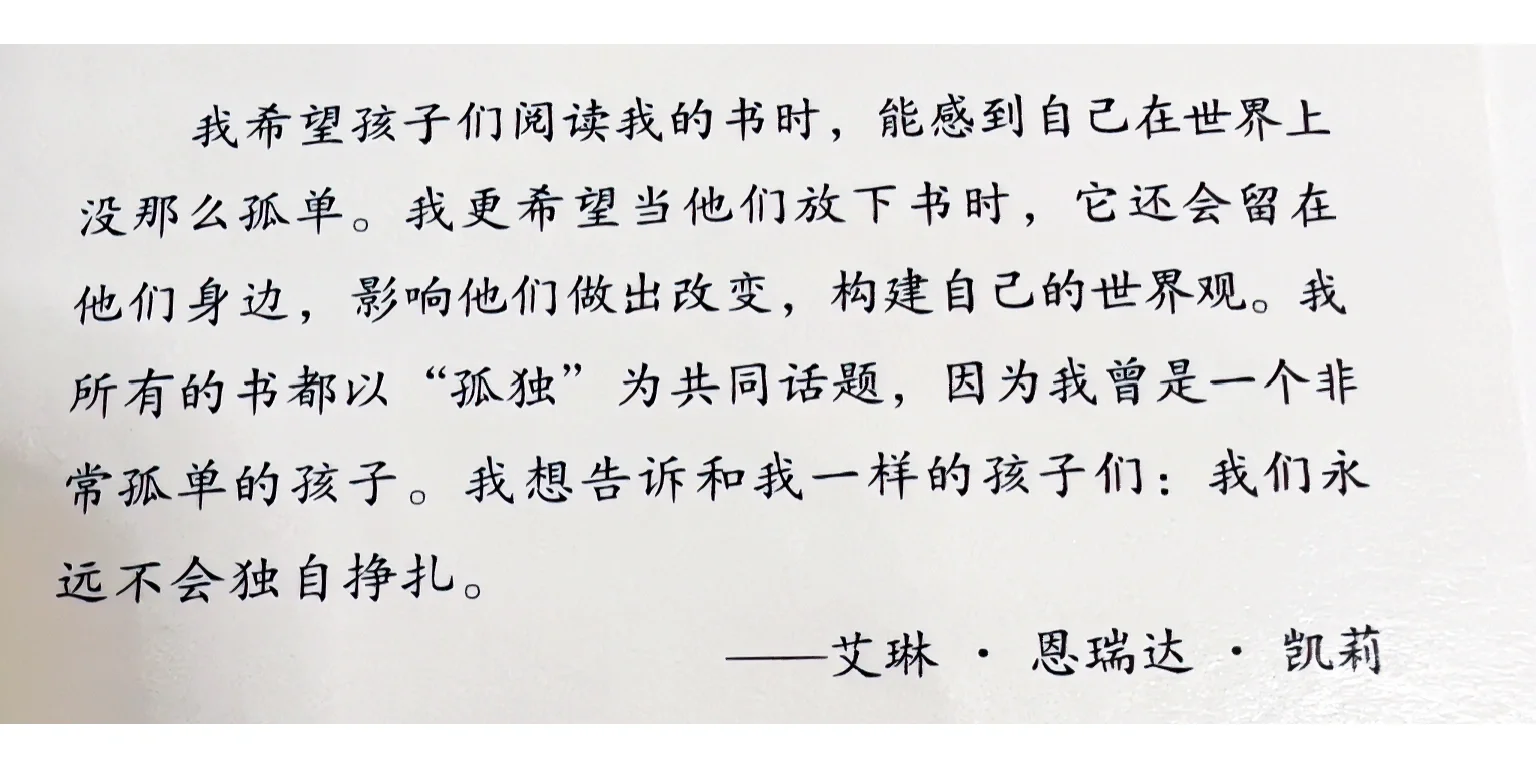 我希望孩子们阅读我的书时，能感到自己在世界上
没那么孤单。我更希望当他们放下书时，它还会留在
他们身边，影响他们做出改变，构建自己的世界观。我
所有的书都以“孤独”为共同话题，因为我曾是一个非
常孤单的孩子。我想告诉和我一样的孩子们：我们永
远不会独自挣扎。
——艾琳 · 恩瑞达 · 凯莉